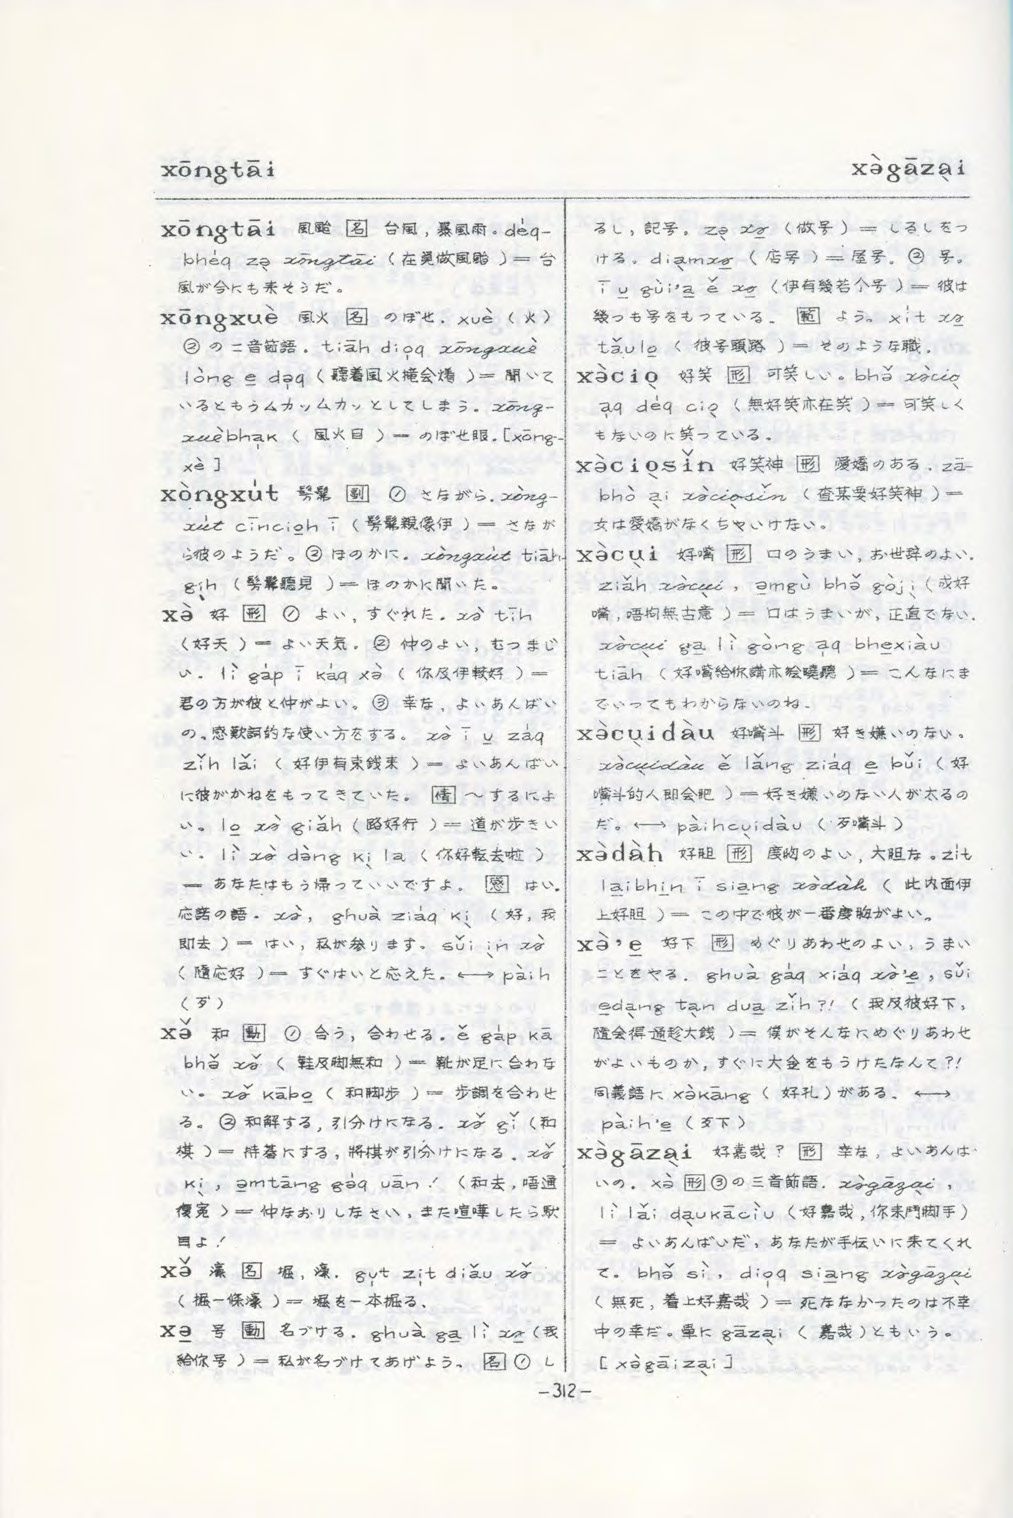 xōngtāi
xə̀gāzai̩
xōngtāi 風颱 [名] 台風,暴風雨。déq-
bhéq zə̩ xōngtāi (在覓做風颱)= 台
風が今にも来そうだ。
xōngxuè 風火 [名] のぼせ. xuè (火)
② の二音節語. tiāh dio̩q xōngxuè
lòng e̲ də̩q (聽着風火掩会熻)= 聞いて
いるともうムカッムカッとしてしまう. xōng-
xuèbha̩k (風火目)= のぼせ眼.[xōng-
xè]
xòngxu̍t 髣髴 [副] ① さながら. xòng-
xu̍t cīncio̩h ī (髣髴親像伊)= さなが
ら彼のようだ。② ほのかに. xòngxu̍t tiāh-
gi̩h (髣髴聽見)= ほのかに聞いた。
xə̀ 好 [形] ① よい,すぐれた. xə̀ tīh
(好天)= よい天気. ② 仲のよい,むつまじ
い. lì gáp ī káq xə̀ (你及伊較好)=
君の方が彼と仲がよい。③ 幸な,よいあんばい
の、感歎詞的な使い方をする。xə̀ ī u̲ záq
zǐh lǎi (好伊有束銭来)= よいあんばい
に彼がかねをもってきていた。[情] 〜するによ
い。lo̲ xə̀ giǎh (路好行)= 道が歩きい
い. lì xə̀ dàng ki̩ la (你好転去啦)
= あなたはもう帰っていいですよ. [感] はい.
応諾の語. xə̀, ghuà ziáq ki̩ (好,我
即去)= はい,私が参ります。sǔi i̩n xə̀
(隨応好)= すぐはいと応えた. ⟷ pàih
(歹)
xə̌ 和 [動] ① 合う,合わせる. ě gáp kā
bhə̌ xə̌ (鞋及脚無和)= 靴が足に合わな
い。xə̌ kābo̲ (和脚步)= 歩調を合わせ
る。② 和解する,引分けになる. xə̌ gǐ (和
棋)= 持碁にする,將棋が引分けになる. xə̌
ki̩, ə̲mtāng gə́q uān! (和去,唔通
復寃)= 仲なおりしなさい,また喧嘩したら駄
目よ!
xə̌ 濠 [名] 堀,濠. gu̩t zi̍t diǎu xə̌
(掘一條濠)= 堀を一本掘る.
xə̲ 号 [動] 名づける. ghuà ga̲ lì xə̲ (我
給你号)= 私が名づけてあげよう. [名] ① し
るし,記号。zə̩ xə̲ (做号)= しるしをつ
ける。dia̩mxə̲ (店号)= 屋号。② 号。
ī u̲ gùi'a̲ ě xə̲ (伊有幾若个号)= 彼は
幾つも号をもっている. [範] よう。xi̍t xə̲
tǎulo̲ (彼号頭路)= そのような職.
xə̀cio̩ 好笑 [形] 可笑しい。bhə̌ xə̀cio̩
a̩q déq cio̩ (無好笑亦在笑)= 可笑しく
もないのに笑っている.
xə̀cio̩sǐn 好笑神 [形] 愛嬌のある. zā-
bhò a̩i xə̀cio̩sǐn (查某要好笑神)=
女は愛嬌がなくちゃいけない。
xə̀cu̩i 好嘴 [形] 口のうまい,お世辞のよい.
ziǎh xə̀cu̩i, ə̲mgù bhə̌ gòji̩ (成好
嘴,唔拘無古意)= 口はうまいが,正直でない.
xə̀cu̩i ga̲ lì gòng a̩q bhexiàu
tiāh (好嘴給你講亦𣍐曉聽)= こんなにま
でいってもわからないのね.
xə̀cu̩idàu 好嘴斗 [形] 好き嫌いのない。
xə̀cu̩idàu ě lǎng ziáq e̲ bǔi (好
嘴斗的人即会肥)= 好き嫌いのない人が太るの
だ。⟷ pàihcu̩idàu (歹嘴斗)
xə̀dàh 好胆 [形] 度胸のよい,大胆な。zi̍t
la̲ibhi̲n ī sia̲ng xə̀dàh (此内面伊
上好胆)= この中で彼が一番度胸がよい。
xə̀'e̲ 好下 [形] めぐりあわせのよい,うまい
ことをやる. ghuà gáq xiáq xə̀'e̲, sǔi
e̲da̲ng ta̩n dua̲ zǐh?! (我及彼好下,
隨会得通趁大銭)= 僕がそんなにめぐりあわせ
がよいものか,すぐに大金をもうけたなんて?!
同義語に xə̀kāng (好孔)がある. ⟷
pàih'e̲ (歹下)
xə̀gāzai̩ 好嘉哉? [形] 幸な,よいあんば
いの. xə̀ [形]③の三音節語. xə̀gāzai̩,
lì lǎi da̩ukāciù (好嘉哉,你来鬥脚手)
= よいあんばいだ,あなたが手伝いに来てくれ
て。bhə̌ sì, dio̩q sia̲ng xə̀gāzai̩
(無死,着上好嘉哉)= 死ななかったのは不幸
中の幸だ。単に gāzai̩ (嘉哉)ともいう。
[xə̀gāizai̩]
—312—